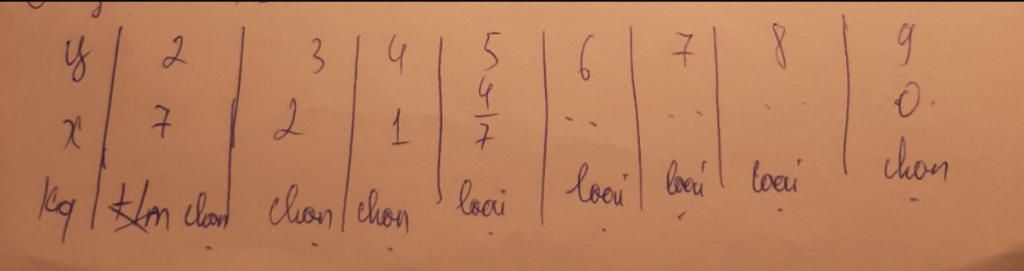 y | 2 | 3 | 4 | 5 | 6 | 7 | 8 | 9
x | 7 | 2 | 1 | 4/7 | .. | .. | .. | 0.
Kq | chọn | chọn | chọn | loại | loại | loại | loại | chọn